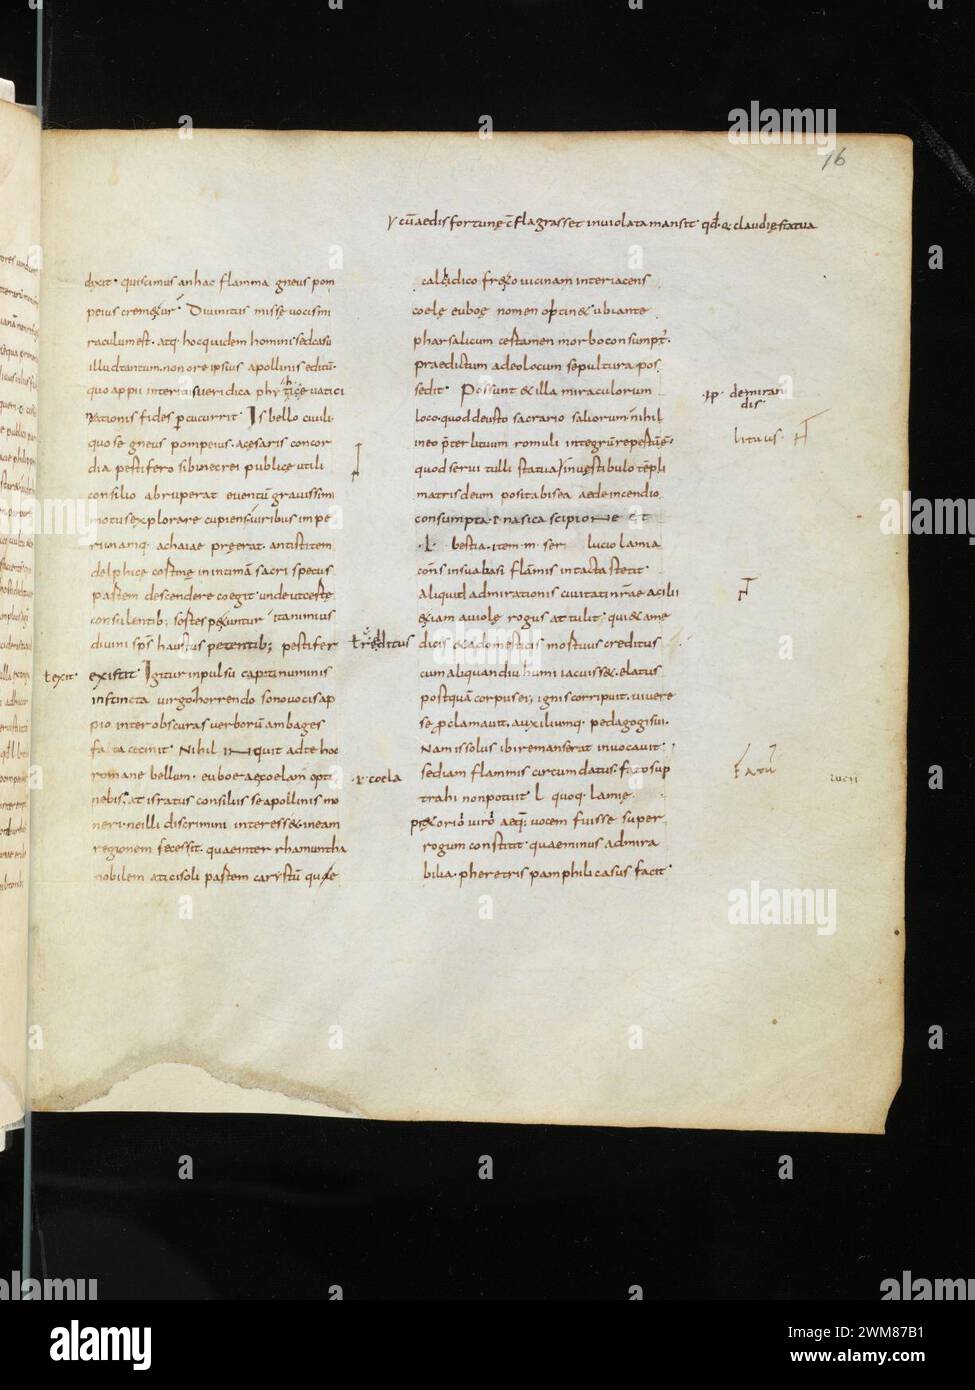 16
γ cū aedis fortunę c̄flagrasset inviolata mansit qđ · q; claudię statua
dixit · quiscimus anhac flamma gneus pom
peius cremęxur Divinitus misse vocis mi
raculum est · atq hoc quidem homini sed casu
illud tantum non ore ipsius apollinis editū
quo appii interitisueridica phyticę vatici
nationis fides ꝑcucurrit Is bello civili
quo se gneus pompeius · acęsaris concor
dia pestifero sibi necrei publicę utili
consilio abruperat eventū gravissimi
motus explorare cupiens viribus impe
rii namq· achaiae pręerat · antistitem
delphicę costinę in intimā sacri specus
partem descendere coegit unde ut certę
consulentib; sortes petuntur ita nimius
divini sp̄s haustus petentib; pestifer
ł exit existit Igitur inpulsu capti numinis
instincta virgo horrendo sono vocis ap
pio inter obscuras verborū ambages
fata cecinit Nihil inquit ad te hoc
romane bellum · euboeaę coelam opti
nebis · at is ratus consiliis se apollinis mo
neri · ne illi discrimini interesset in eam
regionem secessit · quae inter rhamuntha
nobilem atticisoli partem carystū quae
ł reditus
·ɼ· coela
calcidico freto vicinam interiacens
coelę euboę nomen optinet ubi ante
pharsalicum certamen morbo consumpt̄
praedictum a deo locum sepultura pos
sedit Possunt et illa miraculorum
loco quod deusto sacrario saliorum nihil
in eo p̄ter lituum romuli integrū repertū ē
quod servi tulli statua in vestibulo tēpli
matris deum posita bis ea aede incendio
consumpta · P · nasica scipione et
· L · bestia · item m · ser lucio lamia
cons̄ insuabasi flāmis intacta stetit
Aliquid admirationis civitati nr̄ae acilii
etiam aviolę rogus attulit · qui et a me
dicis et a domesticis mortuus creditus
cum aliquandiu humi iacuisset · elatus
postquā corpus ei ignis corripuit · vivere
se proclamavit · auxiliumq · pedagogi sui ·
Nam is solus ibi remanserat invocavit ·
sed iam flammis circumdatus · fato sup
trahi non potuit L quoq · lamię
p̄torio viro aeq; vocem fuisse super
rogum constitit quae minus admira
bilia · pheretris pamphili casus facit
·ɼ· de miran
dis·
lituus·
Fatū
alamy
Image ID: 2WM87B1
www.alamy.com